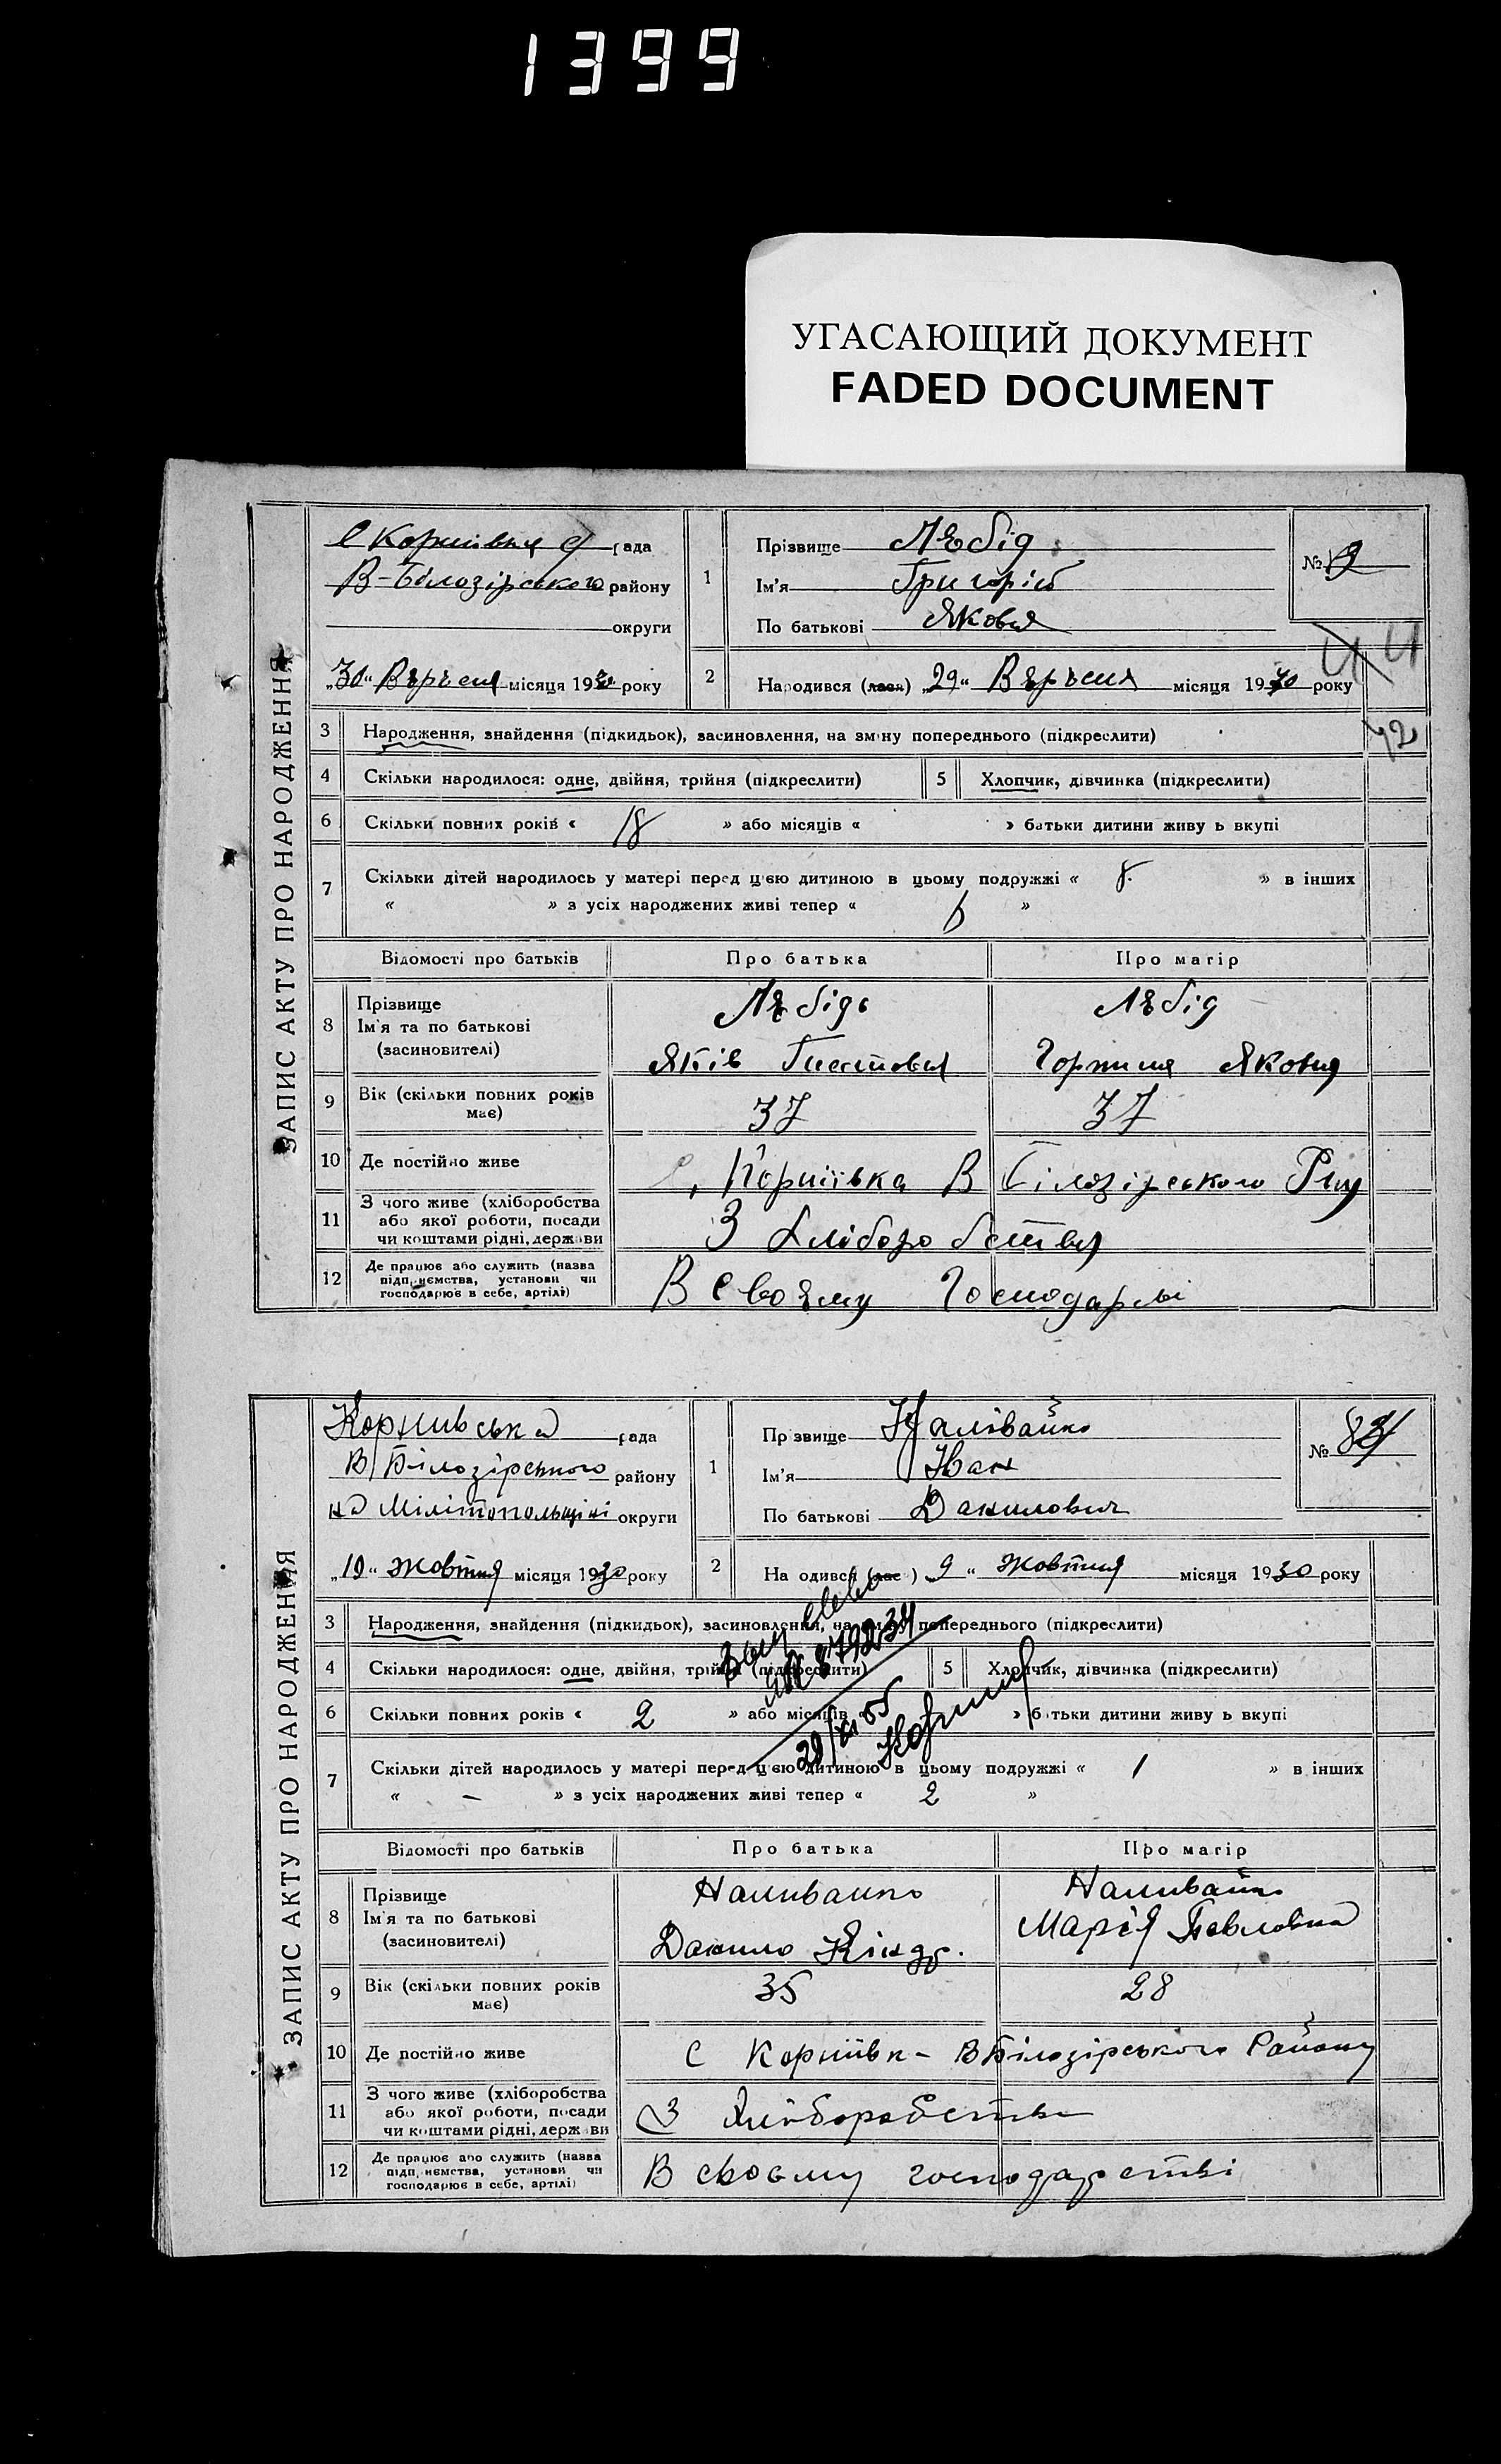 1399
УГАСАЮЩИЙ ДОКУМЕНТ
FADED DOCUMENT
ЗАПИС АКТУ ПРО НАРОДЖЕННЯ
рада
В-Білозірського району
округи
„30“ Вэрэсня місяця 1930 року
1
Прізвище Лэбід
Ім'я Григорій
По батькові Яковл
№ 9
41
42
2 Народився (лася) „29“ Вэрэсня місяця 1930 року
3 Народження, знайдення (підкидьок), засиновлення, на зміну попереднього (підкреслити)
4 Скільки народилося: одне, двійня, трійня (підкреслити) 5 Хлопчик, дівчинка (підкреслити)
6 Скільки повних років « 18 » або місяців « » батьки дитини живуть вкупі
7 Скільки дітей народилось у матері перед цією дитиною в цьому подружжі « 8. » в інших
« » з усіх народжених живі тепер « »
Відомості про батьків Про батька Про матір
8 Прізвище
Ім'я та по батькові
(засиновителі)
Лэбідь Лэбід
Яків Горпина Яковл
9 Вік (скільки повних років має) 37 37
10 Де постійно живе С. Корніівка В Білозірського Рну
11 З чого живе (хліборобства або якої роботи, посади чи коштами рідні, держави З Хлібороботва
12 Де працює або служить (назва підприємства, установи чи господарює в себе, артілі) В своэму Господарві
ЗАПИС АКТУ ПРО НАРОДЖЕННЯ
Корнивська рада
В/Білозірського району
на Мілітопольщіні округи
„10“ жовтня місяця 1930 року
1
Прізвище Налівайко
Іʼмʼя Иван
По батькові Данилович
№ 83
2 Народився (лася) „9“ жовтня місяця 1930 року
3 Народження, знайдення (підкидьок), засиновлення, на зміну попереднього (підкреслити)
4 Скільки народилося: одне, двійня, трійня (підкреслити) 5 Хлопчик, дівчинка (підкреслити)
6 Скільки повних років « 2 » або місяців » батьки дитини живуть вкупі
7 Скільки дітей народилось у матері перед цією дитиною в цьому подружжі « 1 » в інших
« – » з усіх народжених живі тепер « 2 »
29/XI 55
Відомості про батьків Про батька Про матір
8 Прізвище
Ім'я та по батькові
(засиновителі)
Наливайко Наливайко
Данило Кіндр. Марія Павловна
9 Вік (скільки повних років має) 35 28
10 Де постійно живе С Корніівк- В Білозірського Району
11 З чого живе (хліборобства або якої роботи, посади чи коштами рідні, держави З Хліборобства
12 Де працює або служить (назва підприємства, установи чи господарює в себе, артілі) В своєму господарстві